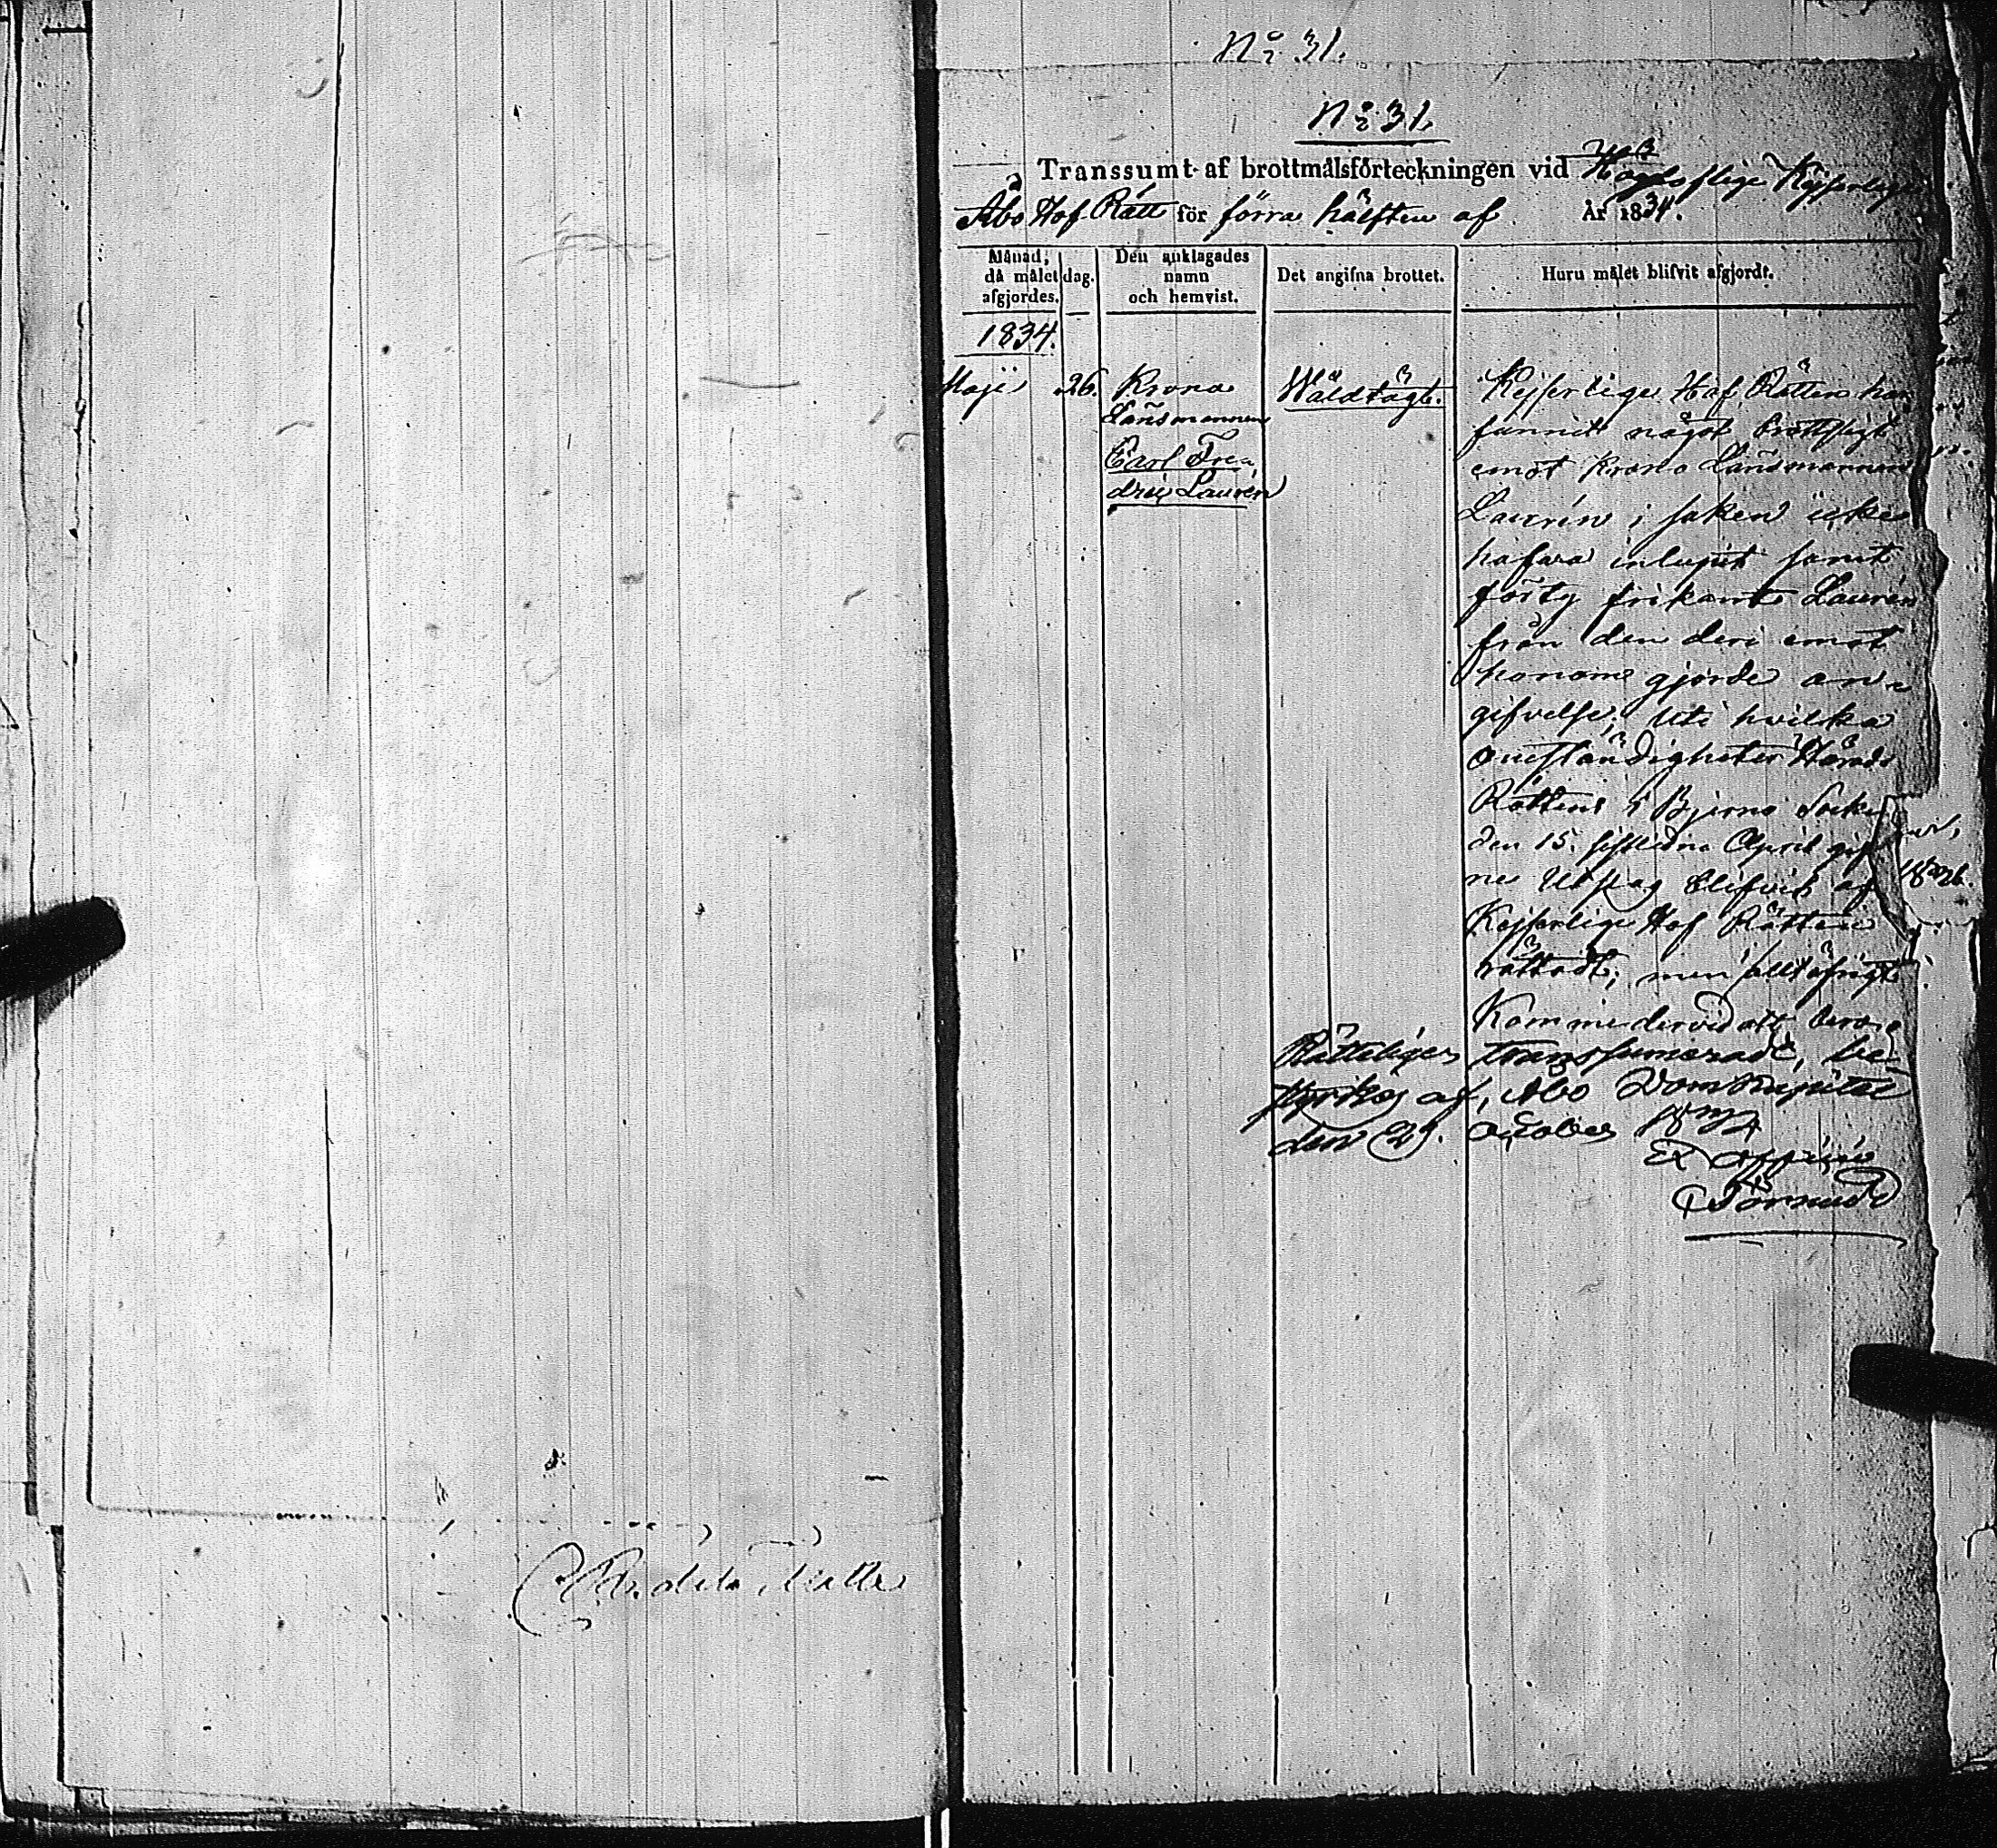 N:o 31.
N:o 31.
Transsumt af brottmålsförteckningen vid Högloflige Kejserlige
Åbo Hof Rätt för förra hälften af År 1834.
Månad, då målet afgjordes.
dag.
Den anklagades namn och hemvist.
Det angifna brottet.
Huru målet blifvit afgjordt.
1834.
Maji 26.
Krono
Länsmannen
Carl Fre-
dric Laurén
Wåldtägt.
Kejserlige Hof Rätten har
funnit något brottsligt
emot Krono Länsmannen
Laurén i saken icke
hafva inlupit samt
förty frikänt Laurén
från den deri emot
honom gjorde an-
gifvelse; Uti hvilka
omständigheter Härads
Rättens i Bjerno Socken
den 15. sistledne April gif-
ne Utslag blifvit af
Kejserlige Hof Rätten
rättadt; men i allt öfrigt
Komme dervid att bero.
Rätteligen transsumeradt, be-
styrkes af, Åbo Domkapitel
den 29. October 1834
Ex officio